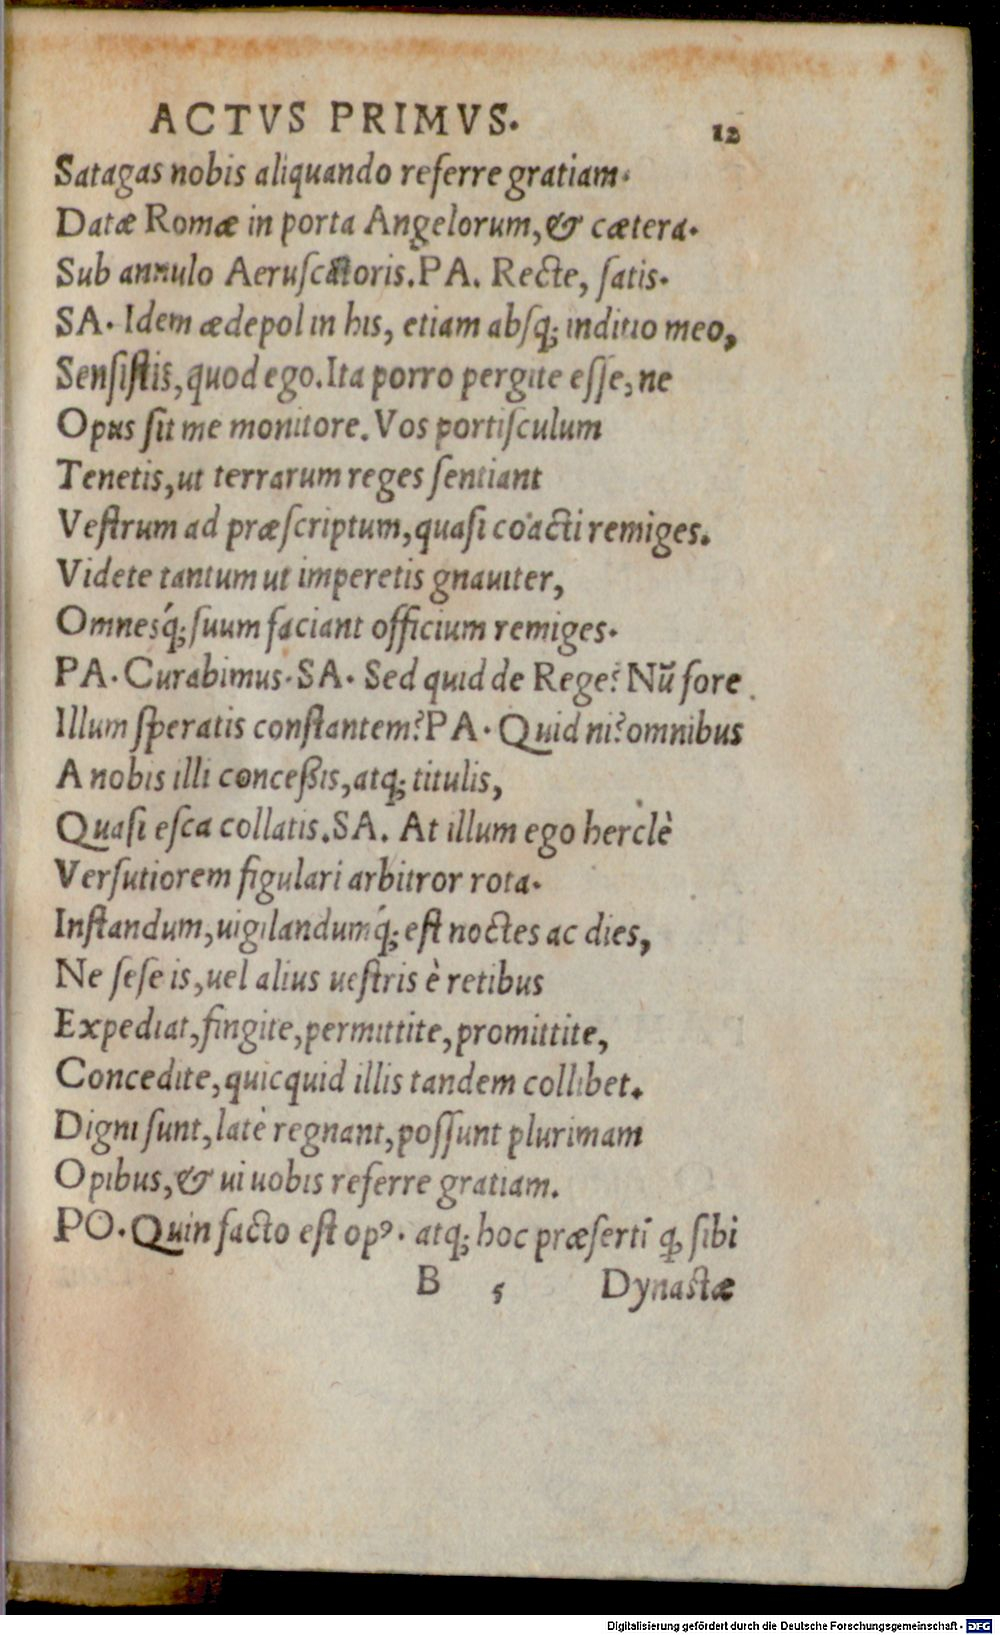 ACTVS PRIMVS. 12
Satagas nobis aliquando referre gratiam.
Datæ Romæ in porta Angelorum, & cætera.
Sub annulo Aeruscatoris. PA. Recte, satis.
SA. Idem ædepol in his, etiam absq; inditio meo,
Sensistis, quod ego. Ita porro pergite esse, ne
Opus sit me monitore. Vos portisculum
Tenetis, ut terrarum reges sentiant
Vestrum ad præscriptum, quasi coacti remiges.
Videte tantum ut imperetis gnauiter,
Omnesq́; suum faciant officium remiges.
PA. Curabimus. SA. Sed quid de Rege? Nũ fore
Illum speratis constantem? PA. Quid ni? omnibus
A nobis illi conceßis, atq; titulis,
Quasi esca collatis. SA. At illum ego herclè
Versutiorem figulari arbitror rota.
Instandum, uigilandumq́; est noctes ac dies,
Ne sese is, uel alius uestris è retibus
Expediat, fingite, permittite, promittite,
Concedite, quicquid illis tandem collibet.
Digni sunt, latè regnant, possunt plurimam
Opibus, & ui uobis referre gratiam.
PO. Quin facto est opꝰ. atq; hoc præsertĩ ꝙ sibi
B 5 Dynastæ
Digitalisierung gefördert durch die Deutsche Forschungsgemeinschaft - DFG